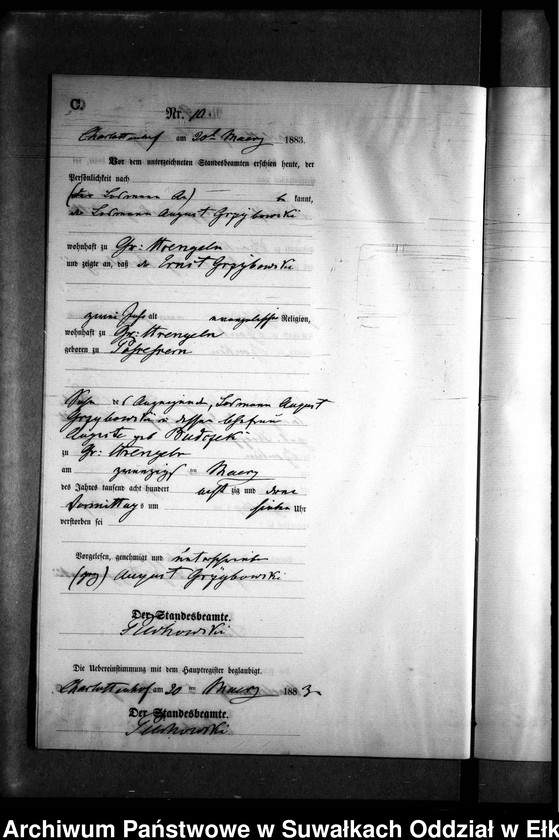 C.
Nr. 10.
Charlottenhof am 20t Maerz 1883.
Vor dem unterzeichneten Standesbeamten erschien heute, der
Persönlichkeit nach
(der Losmann An) be kannt,
de Losmann August Grzybowski
wohnhaft zu Gr: Wrengeln
und zeigte an, daß de Ernst Grzybowski
zwei Jahr alt evangelischer Religion,
wohnhaft zu Gr: Wrengeln
geboren zu
Sohn des Anzeigende, Losmann August
Grzybowski u dessen Ehefrau
Auguste geb
zu Gr: Wrengeln
am zwanzigs ten Maerz
des Jahres tausend acht hundert acht zig und drei
Vormittags um sieben Uhr
verstorben sei
Vorgelesen, genehmigt und unterschrieben
(gez) August Grzybowski
Der Standesbeamte.
Die Uebereinstimmung mit dem Hauptregister beglaubigt.
Charlottenhof am 20 ten Maerz 1883
Der Standesbeamte.
Archiwum Państwowe w Suwałkach Oddział w Ełk